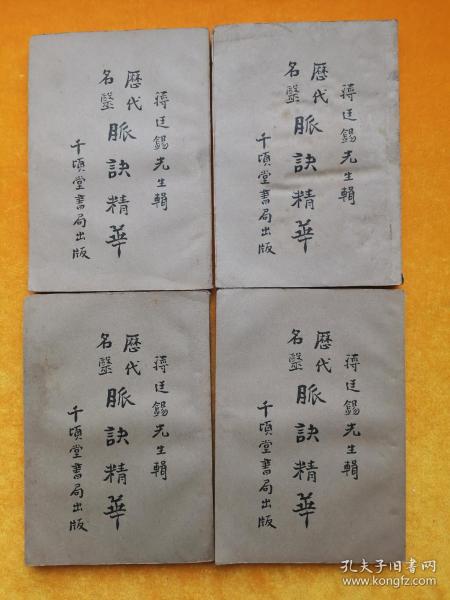 蒋廷錫先生輯
歷代
名醫
脈訣精華
千頃堂書局出版
蒋廷錫先生輯
歷代
名醫
脈訣精華
千頃堂書局出版
蒋廷錫先生輯
歷代
名醫
脈訣精華
千頃堂書局出版
蒋廷錫先生輯
歷代
名醫
脈訣精華
千頃堂書局出版
孔夫子旧书网
www.kongfz.com